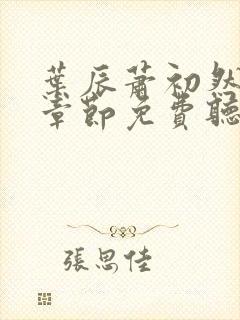 葉辰蕭初然
章節免費聽
張思佳